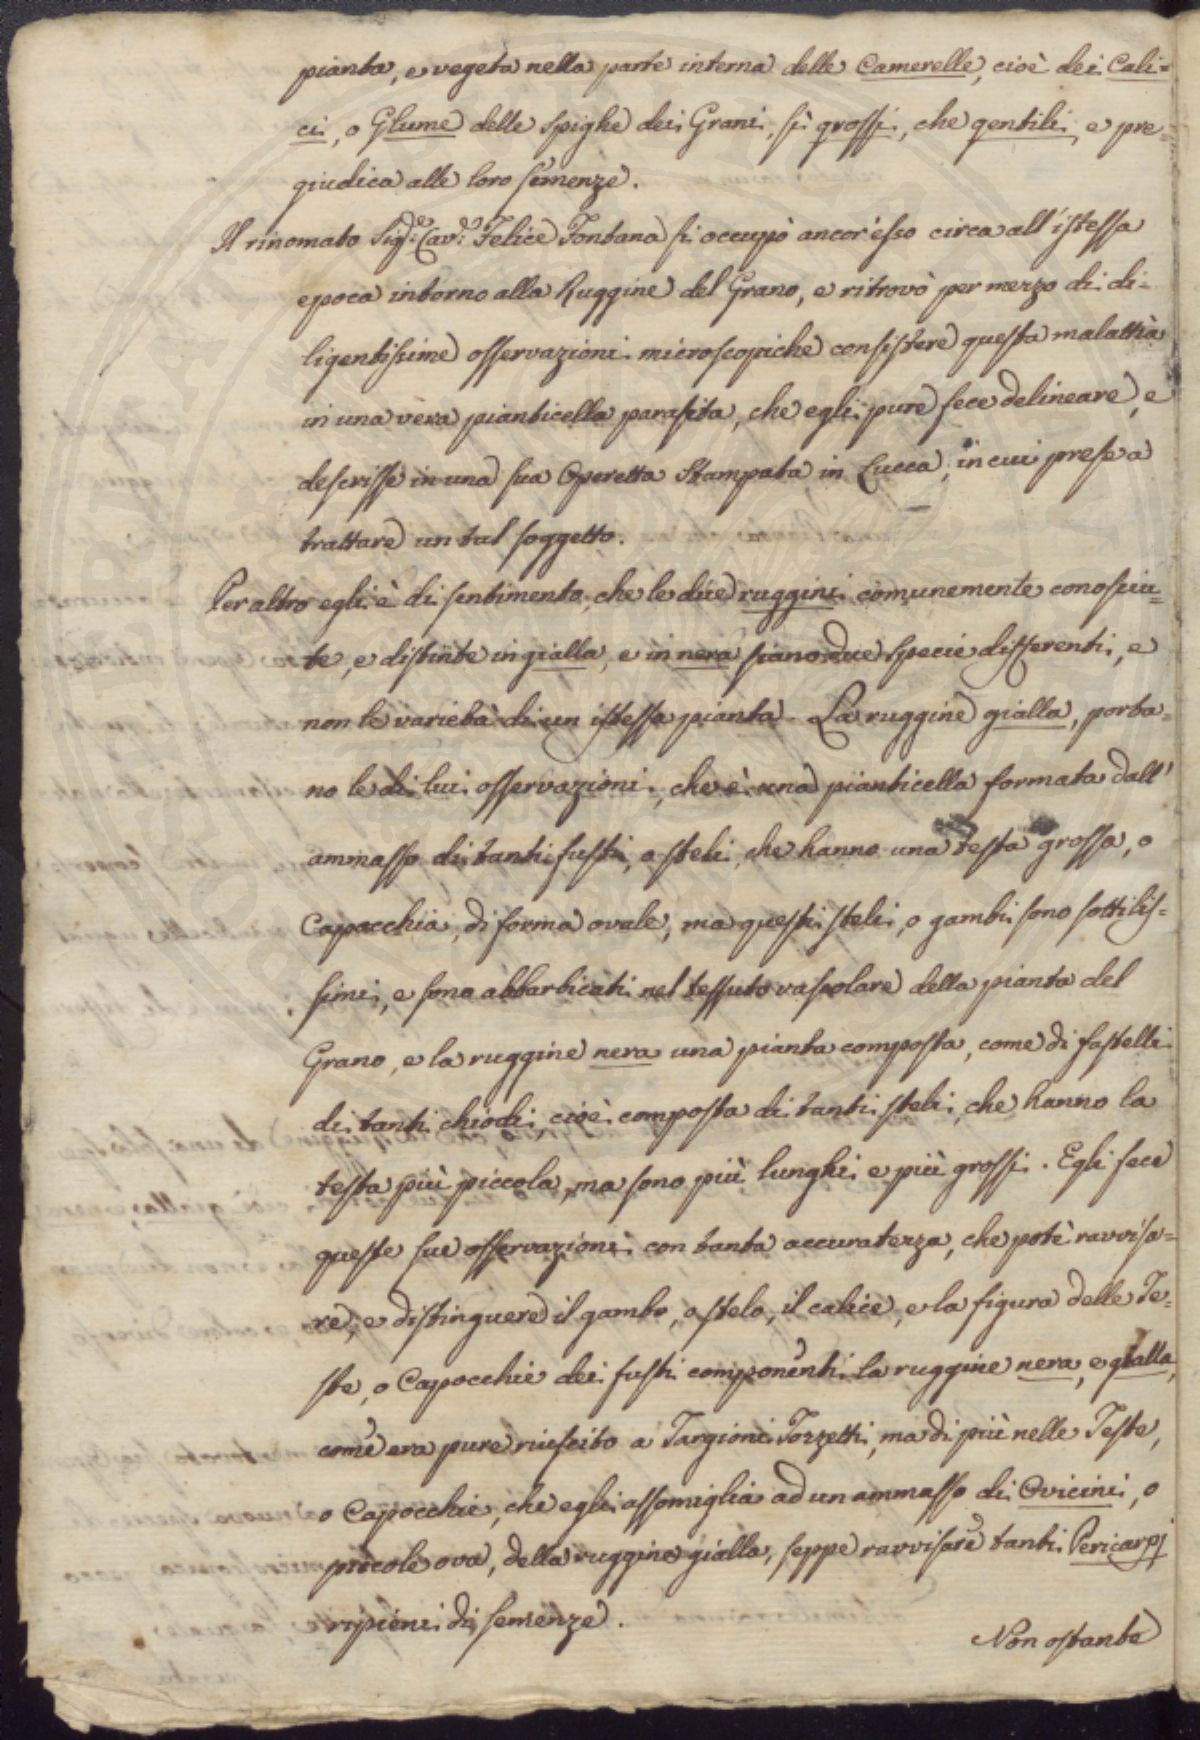 pianta, e vegeta nella parte interna delle Camerelle, cioè dei Cali=
ci, o Glume delle spighe dei Grani, sì grossi, che gentili, e pre=
giudica alle loro semenze.
Il rinomato Sig.e Cav.e Felice Fontana si occupò ancor'esso circa all'istessa
epoca intorno alla Ruggine del Grano, e ritrovò per mezzo di di=
ligentissime osservazioni microscopiche consistere questa malattia
in una vera pianticella parasita, che egli pure fece delineare, e
descrisse in una sua Operetta Stampata in Lucca, in cui prese a
trattare un tal soggetto.
Per altro egli è di sentimento, che le due ruggini comunemente conosciu=
te, e distinte in gialla, e in nera siano due specie differenti, e
non le varietà di un istessa pianta. La ruggine gialla, porta=
no le di lui osservazioni, che è una pianticella formata dall'
ammasso di tanti fusti, o steli, che hanno una testa grossa, o
Capocchia, di forma ovale, ma questi steli, o gambi sono sottilis=
simi, e sono abbarbicati nel tessuto vascolare della pianta del
Grano, e la ruggine nera una pianta composta, come di fastelli
di tanti chiodi, cioè composta di tanti steli, che hanno la
testa più piccola, ma sono più lunghi e più grossi. Egli fece
queste sue osservazioni con tanta accuratezza, che potè ravvisa=
re, e distinguere il gambo, o stelo, il calice, e la figura delle Te=
ste, o Capocchie dei fusti componenti la ruggine nera, e gialla,
come era pure riescito a Targioni Tozzetti, ma di più nelle Teste,
o Capocchie, che egli assomiglia ad un ammasso di Ovicini, o
piccole ova, della ruggine gialla, seppe ravvisare tanti Pericarpj
ripieni di semenze.
Non ostante